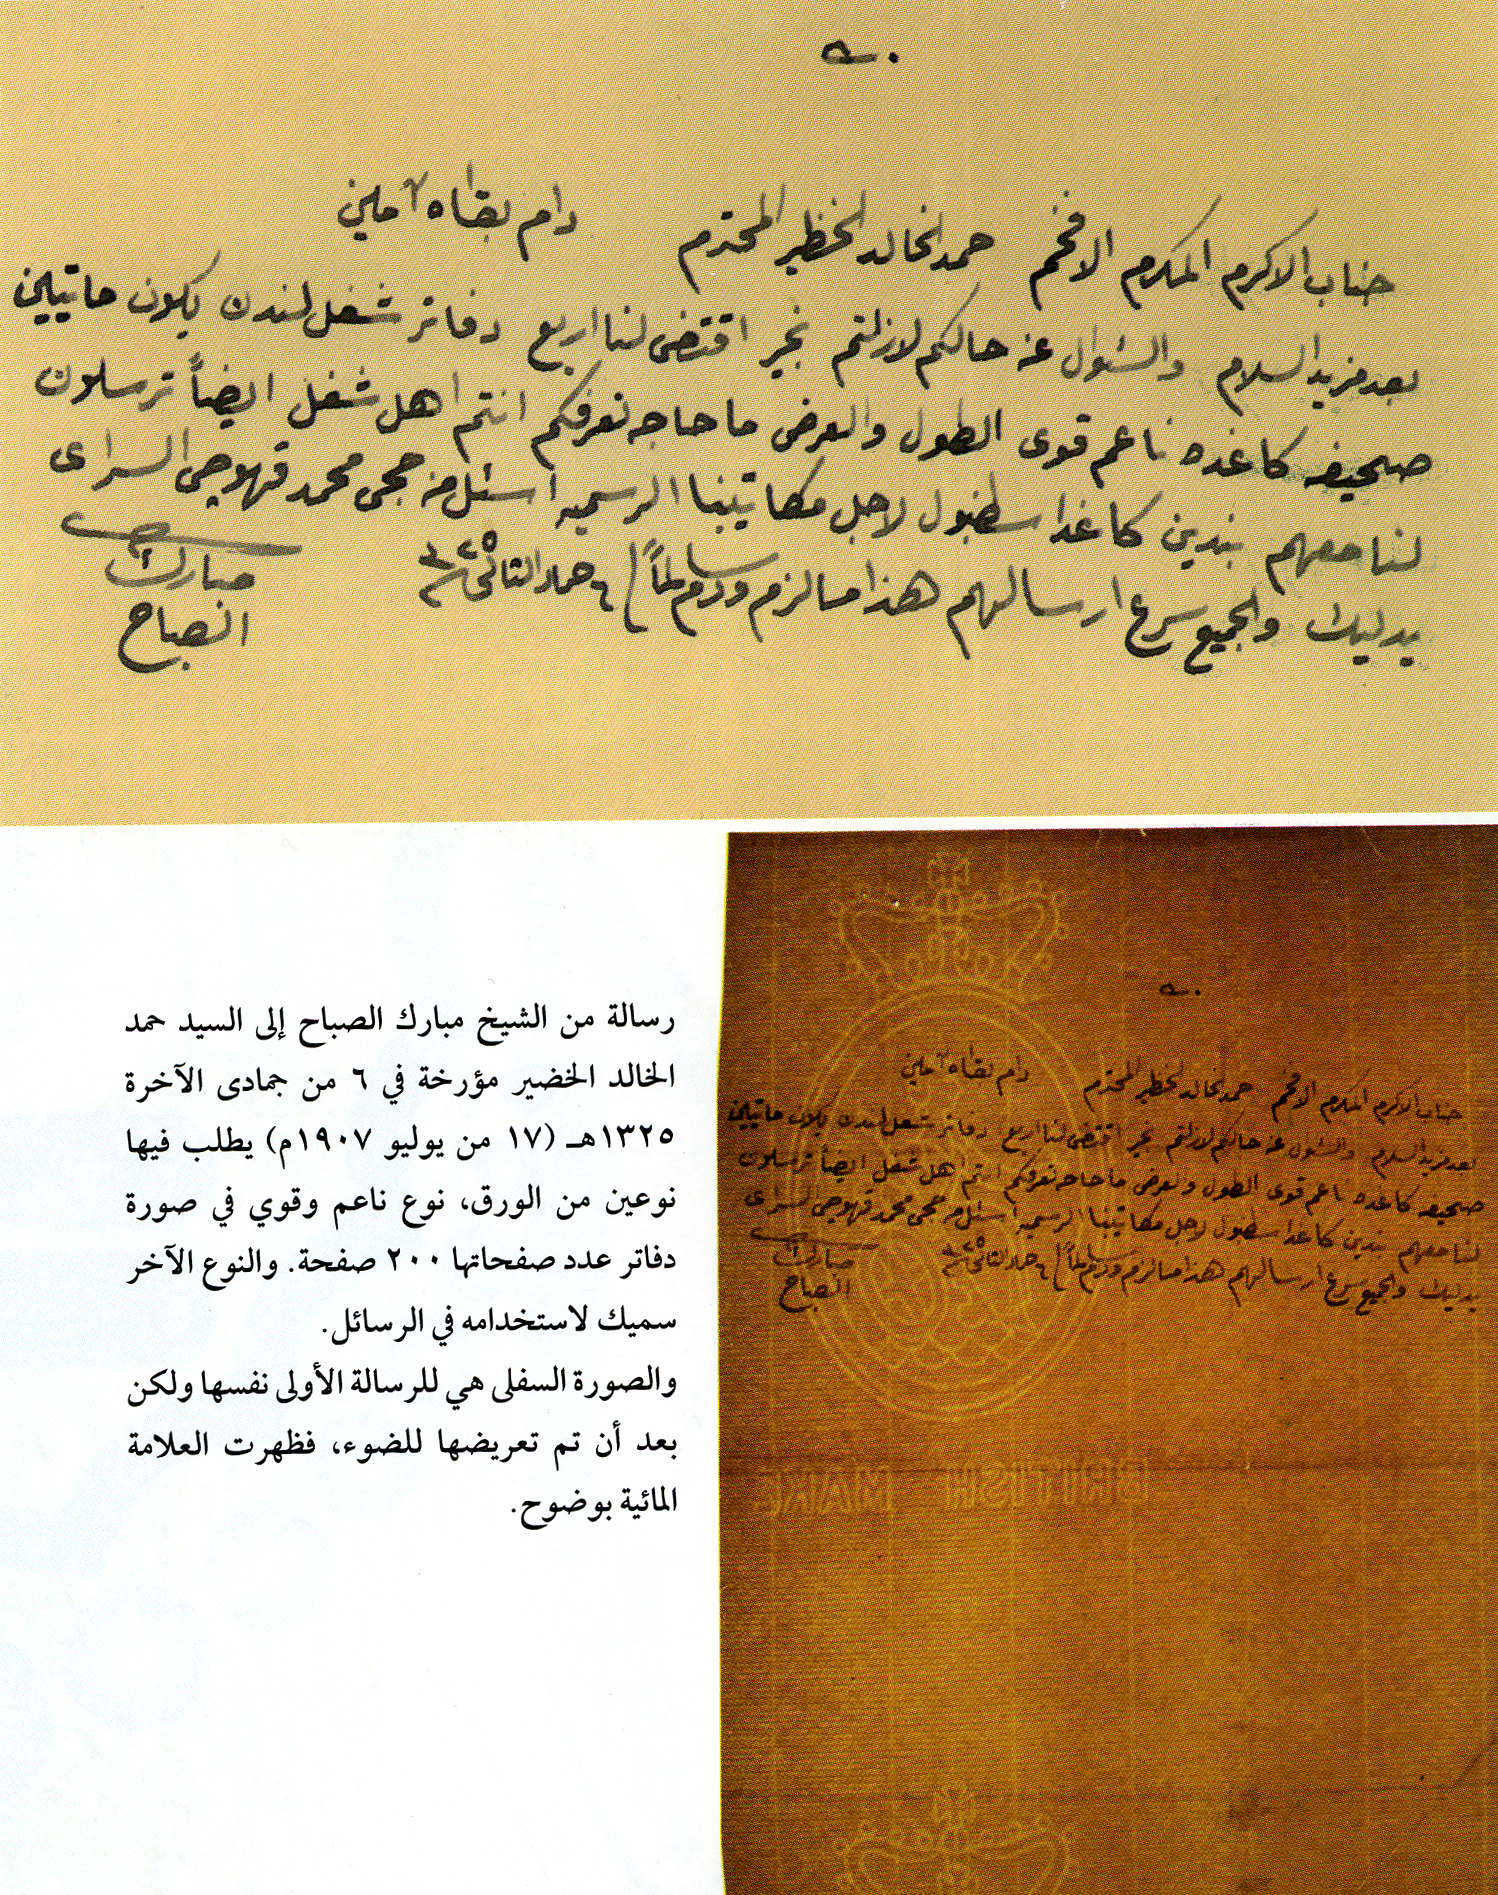 جناب الاكرم المكرم الافخم حمد الخالد الخظير المحترم دام بقاه آمين
بعد مزيد السلام والسئوال عن حالكم لازلتم بخير اقتضى لنا اربع دفاتر شغل لندن يكون ماتيين
صحيفه كاغده ناعم قوى الطول والعرض ما حاجه نعرفكم انتم اهل شغل ايضاً ترسلون
لنا معهم بندين كاغد اسطنبول لاجل مكاتيبنا الرسميه اسئل من حجى محمد قهوجى السراى
يدليك والجميع سرع ارسالهم هذا مالزم ودم سالماً ٦ جماد الثانى ٣٢٥
مبارك
الصباح
رسالة من الشيخ مبارك الصباح إلى السيد حمد
الخالد الخضير مؤرخة في ٦ من جمادى الآخرة
١٣٢٥هـ (١٧ من يوليو ١٩٠٧م) يطلب فيها
نوعين من الورق، نوع ناعم وقوي في صورة
دفاتر عدد صفحاتها ٢٠٠ صفحة. والنوع الآخر
سميك لاستخدامه في الرسائل.
والصورة السفلى هي للرسالة الأولى نفسها ولكن
بعد أن تم تعريضها للضوء، فظهرت العلامة
المائية بوضوح.
جناب الاكرم المكرم الافخم حمد الخالد الخظير المحترم دام بقاه آمين
بعد مزيد السلام والسئوال عن حالكم لازلتم بخير اقتضى لنا اربع دفاتر شغل لندن يكون ماتيين
صحيفه كاغده ناعم قوى الطول والعرض ما حاجه نعرفكم انتم اهل شغل ايضاً ترسلون
لنا معهم بندين كاغد اسطنبول لاجل مكاتيبنا الرسميه اسئل من حجى محمد قهوجى السراى
يدليك والجميع سرع ارسالهم هذا مالزم ودم سالماً ٦ جماد الثانى ٣٢٥
مبارك
الصباح
BRITISH MAKE